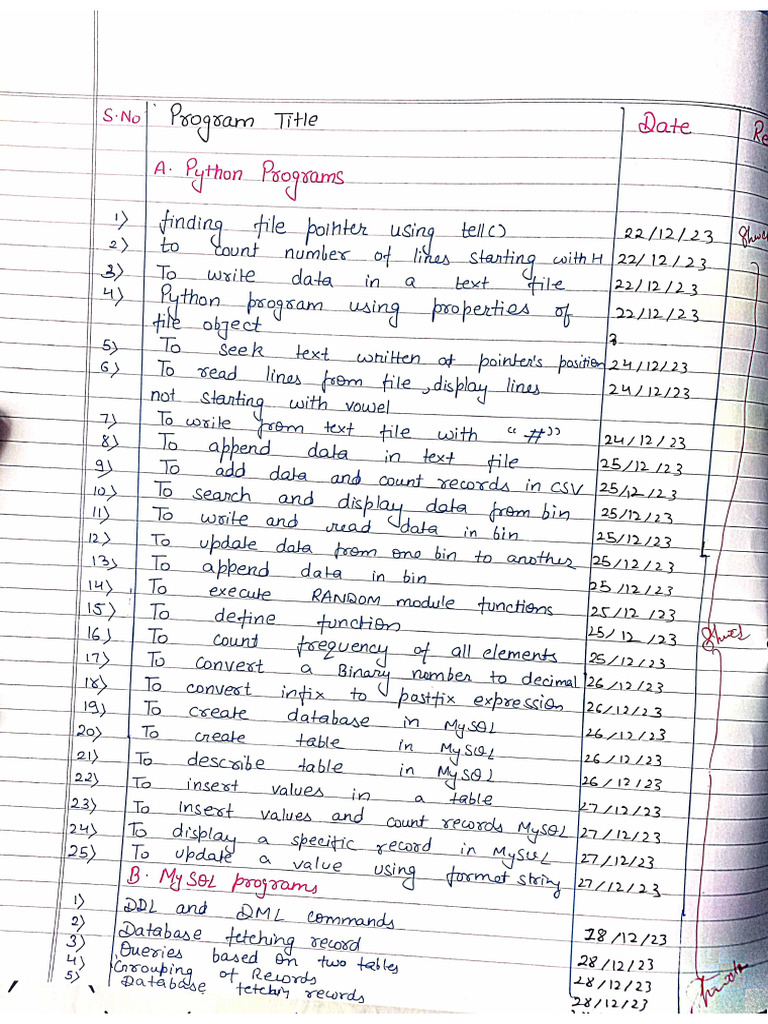 S.No Program Title Date Re
A. Python Programs
1) finding file pointer using tell() 22/12/23
2) to count number of lines starting with H 22/12/23
3) To write data in a text file 22/12/23
4) Python program using properties of 22/12/23
file object
5) To seek text written at pointer's position 24/12/23
6) To read lines from file, display lines 24/12/23
not starting with vowel
7) To write from text file with "#" 24/12/23
8) To append data in text file 25/12/23
9) To add data and count records in CSV 25/12/23
10) To search and display data from bin 25/12/23
11) To write and read data in bin 25/12/23
12) To update data from one bin to another 25/12/23
13) To append data in bin 25/12/23
14) To execute RANDOM module functions 25/12/23
15) To define function 25/12/23
16) To count frequency of all elements 25/12/23
17) To convert a Binary number to decimal 26/12/23
18) To convert infix to postfix expression 26/12/23
19) To create database in MySQL 26/12/23
20) To create table in MySQL 26/12/23
21) To describe table in MySQL
22) To insert values in a table 27/12/23
23) To insert values and count records MySQL 27/12/23
24) To display a specific record in MySQL 27/12/23
25) To update a value using format string 27/12/23
B. MySQL programs
1) DDL and DML commands 28/12/23
2) Database fetching record 28/12/23
3) Queries based on two tables 28/12/23
4) Grouping of Records 28/12/23
5) Database fetching records